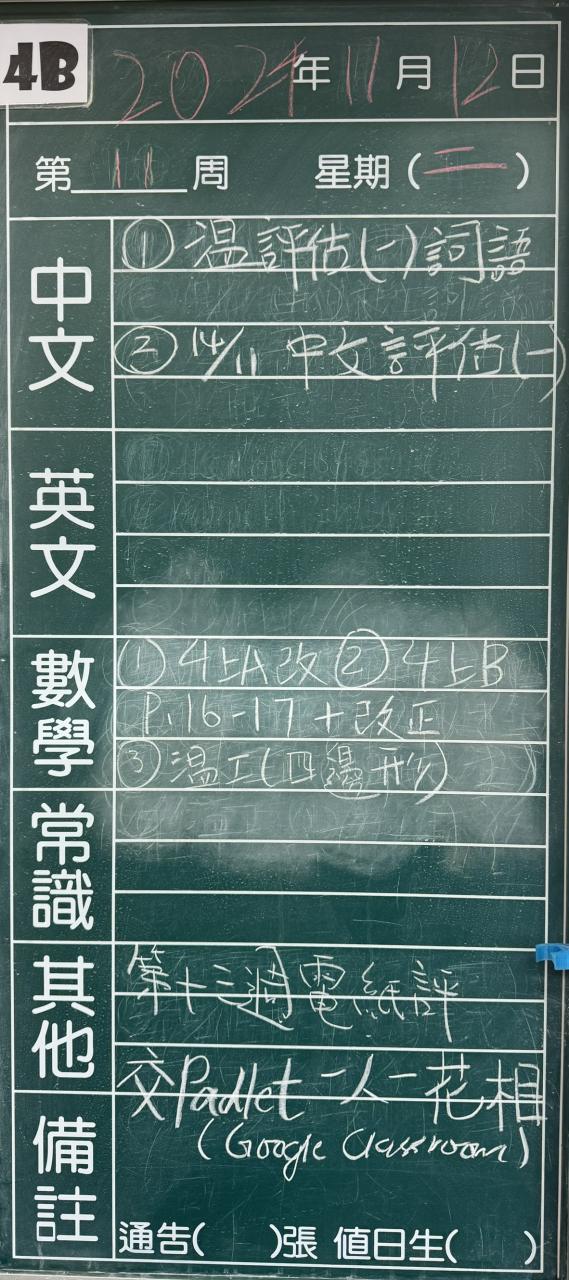 4B
2024年11月12日
第11周 星期(二)
中文
①溫評估(一)詞語
②14/11 中文評估(一)
英文
數學
①4上A改②4上B
P.16-17+改正
③溫工(四邊形)
常識
其他
第十三週電紙評
交Padlet 一人一花相
(Google Classroom)
備註
通告( )張 值日生( )